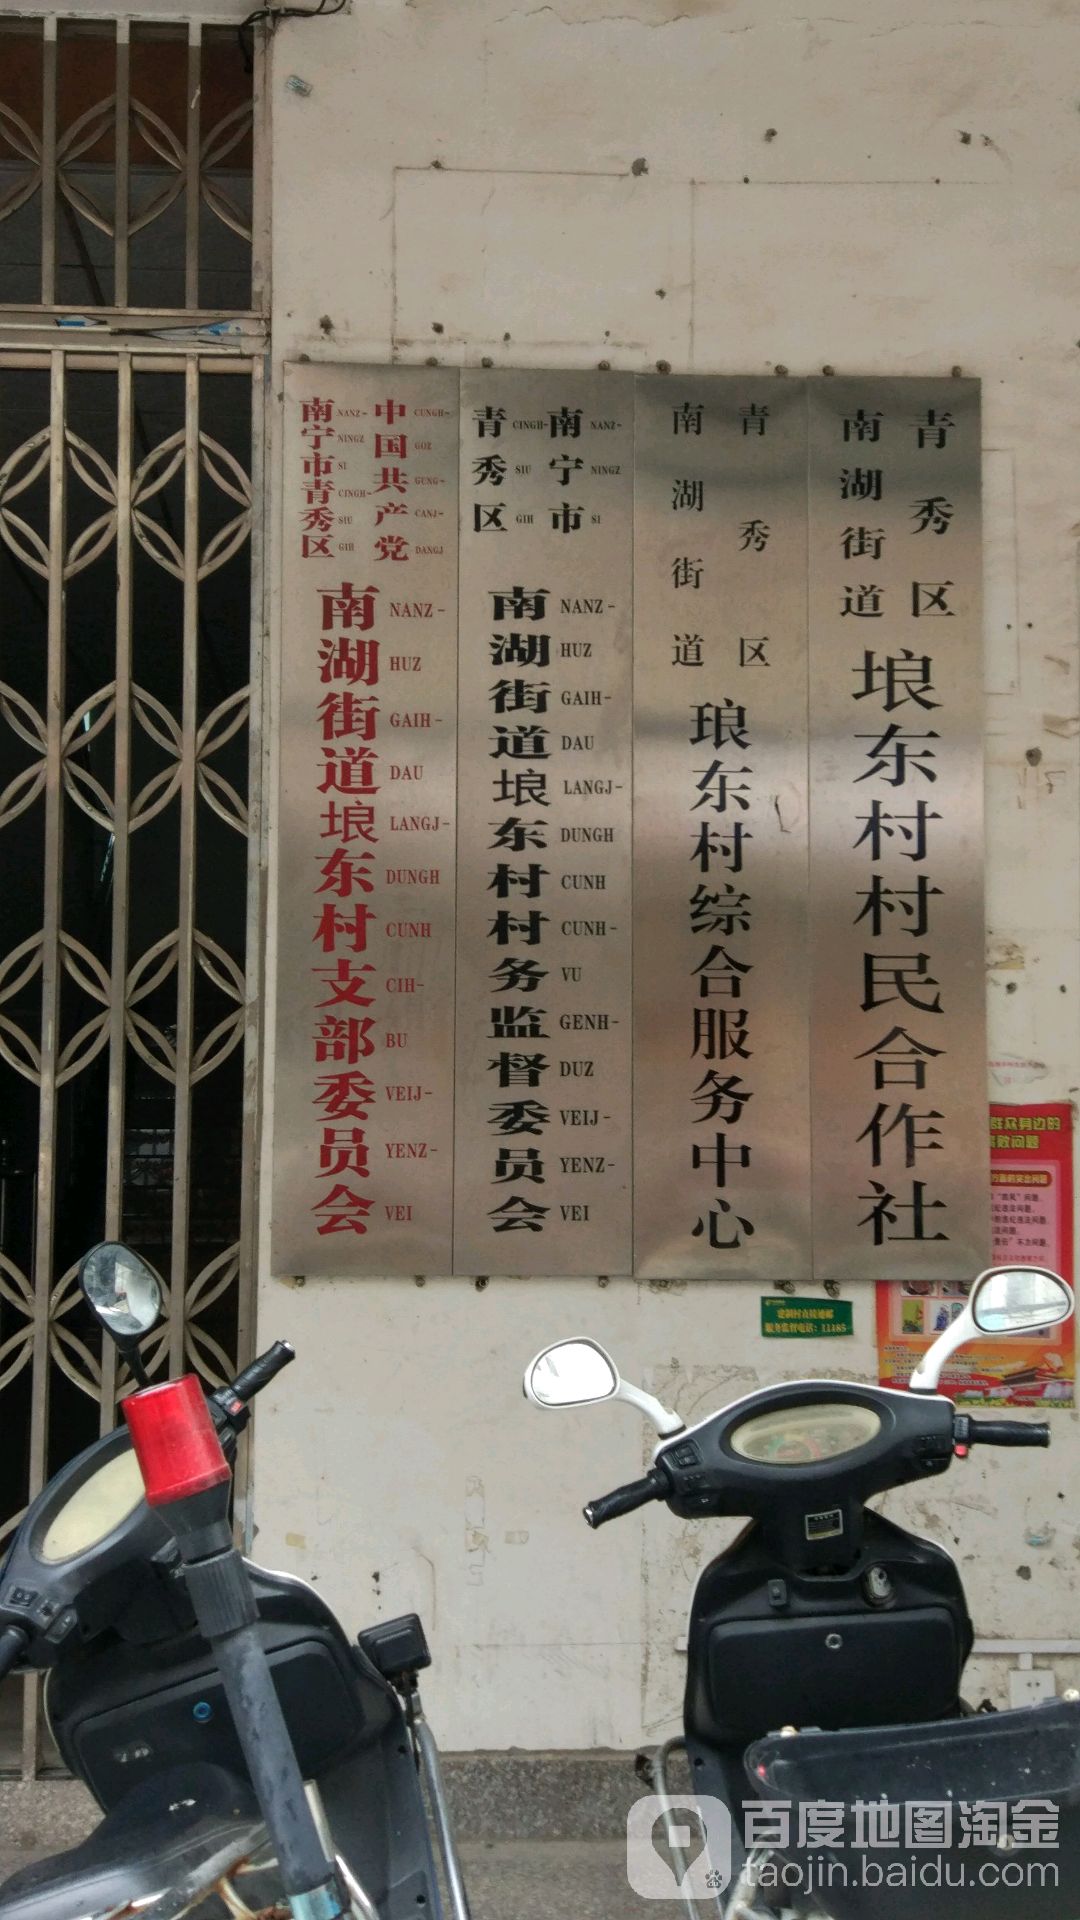 中国共产党
CUNGH-GOZ GUNG-CANJ-DANGJ
南宁市青秀区
NANZ-NINGZ SI CINGH-SIU GIH
南湖街道埌东村支部委员会
NANZ-HUZ GAIH-DAU LANGJ-DUNGH CUNH CIH-BU VEIJ-YENZ-VEI
南宁市
NANZ-NINGZ SI
青秀区
CINGH-SIU GIH
南湖街道埌东村村务监督委员会
NANZ-HUZ GAIH-DAU LANGJ-DUNGH CUNH CUNH-VU GENH-DUZ VEIJ-YENZ-VEI
青秀区
南湖街道
琅东村综合服务中心
青秀区
南湖街道
埌东村村民合作社
建制村直接通邮
服务监督电话：11185
群众身边的
腐败问题
百度地图淘金
taojin.baidu.com